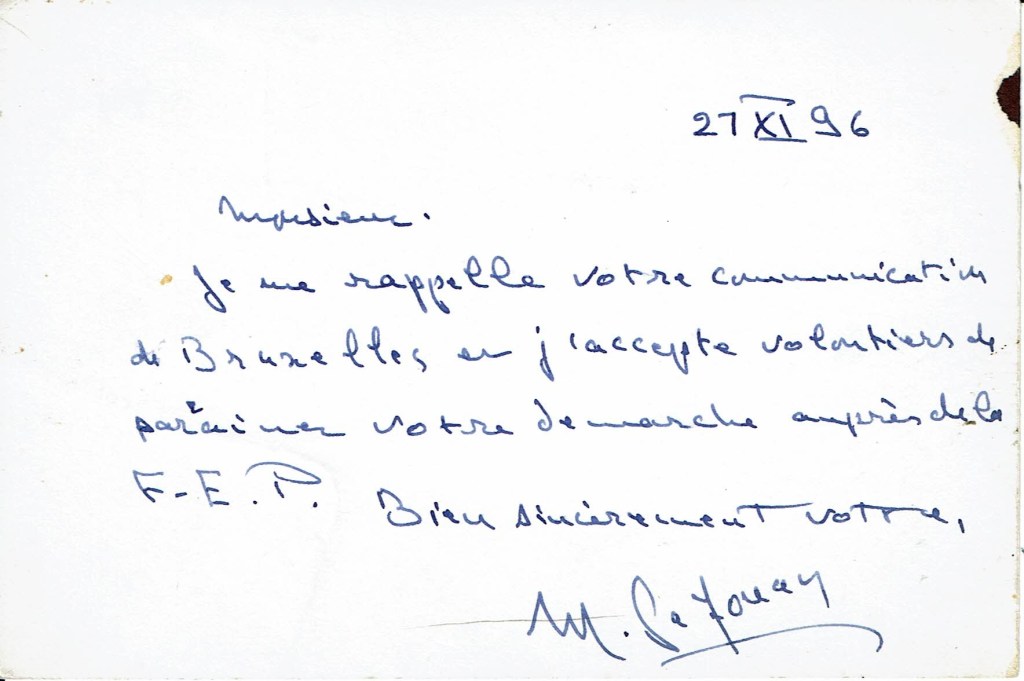 27 XI 96
Monsieur.
Je me rappelle votre communication
de Bruxelles et j'accepte volontiers de
parrainer votre démarche auprès de la
F-E.P.
Bien sincèrement votre,
M.